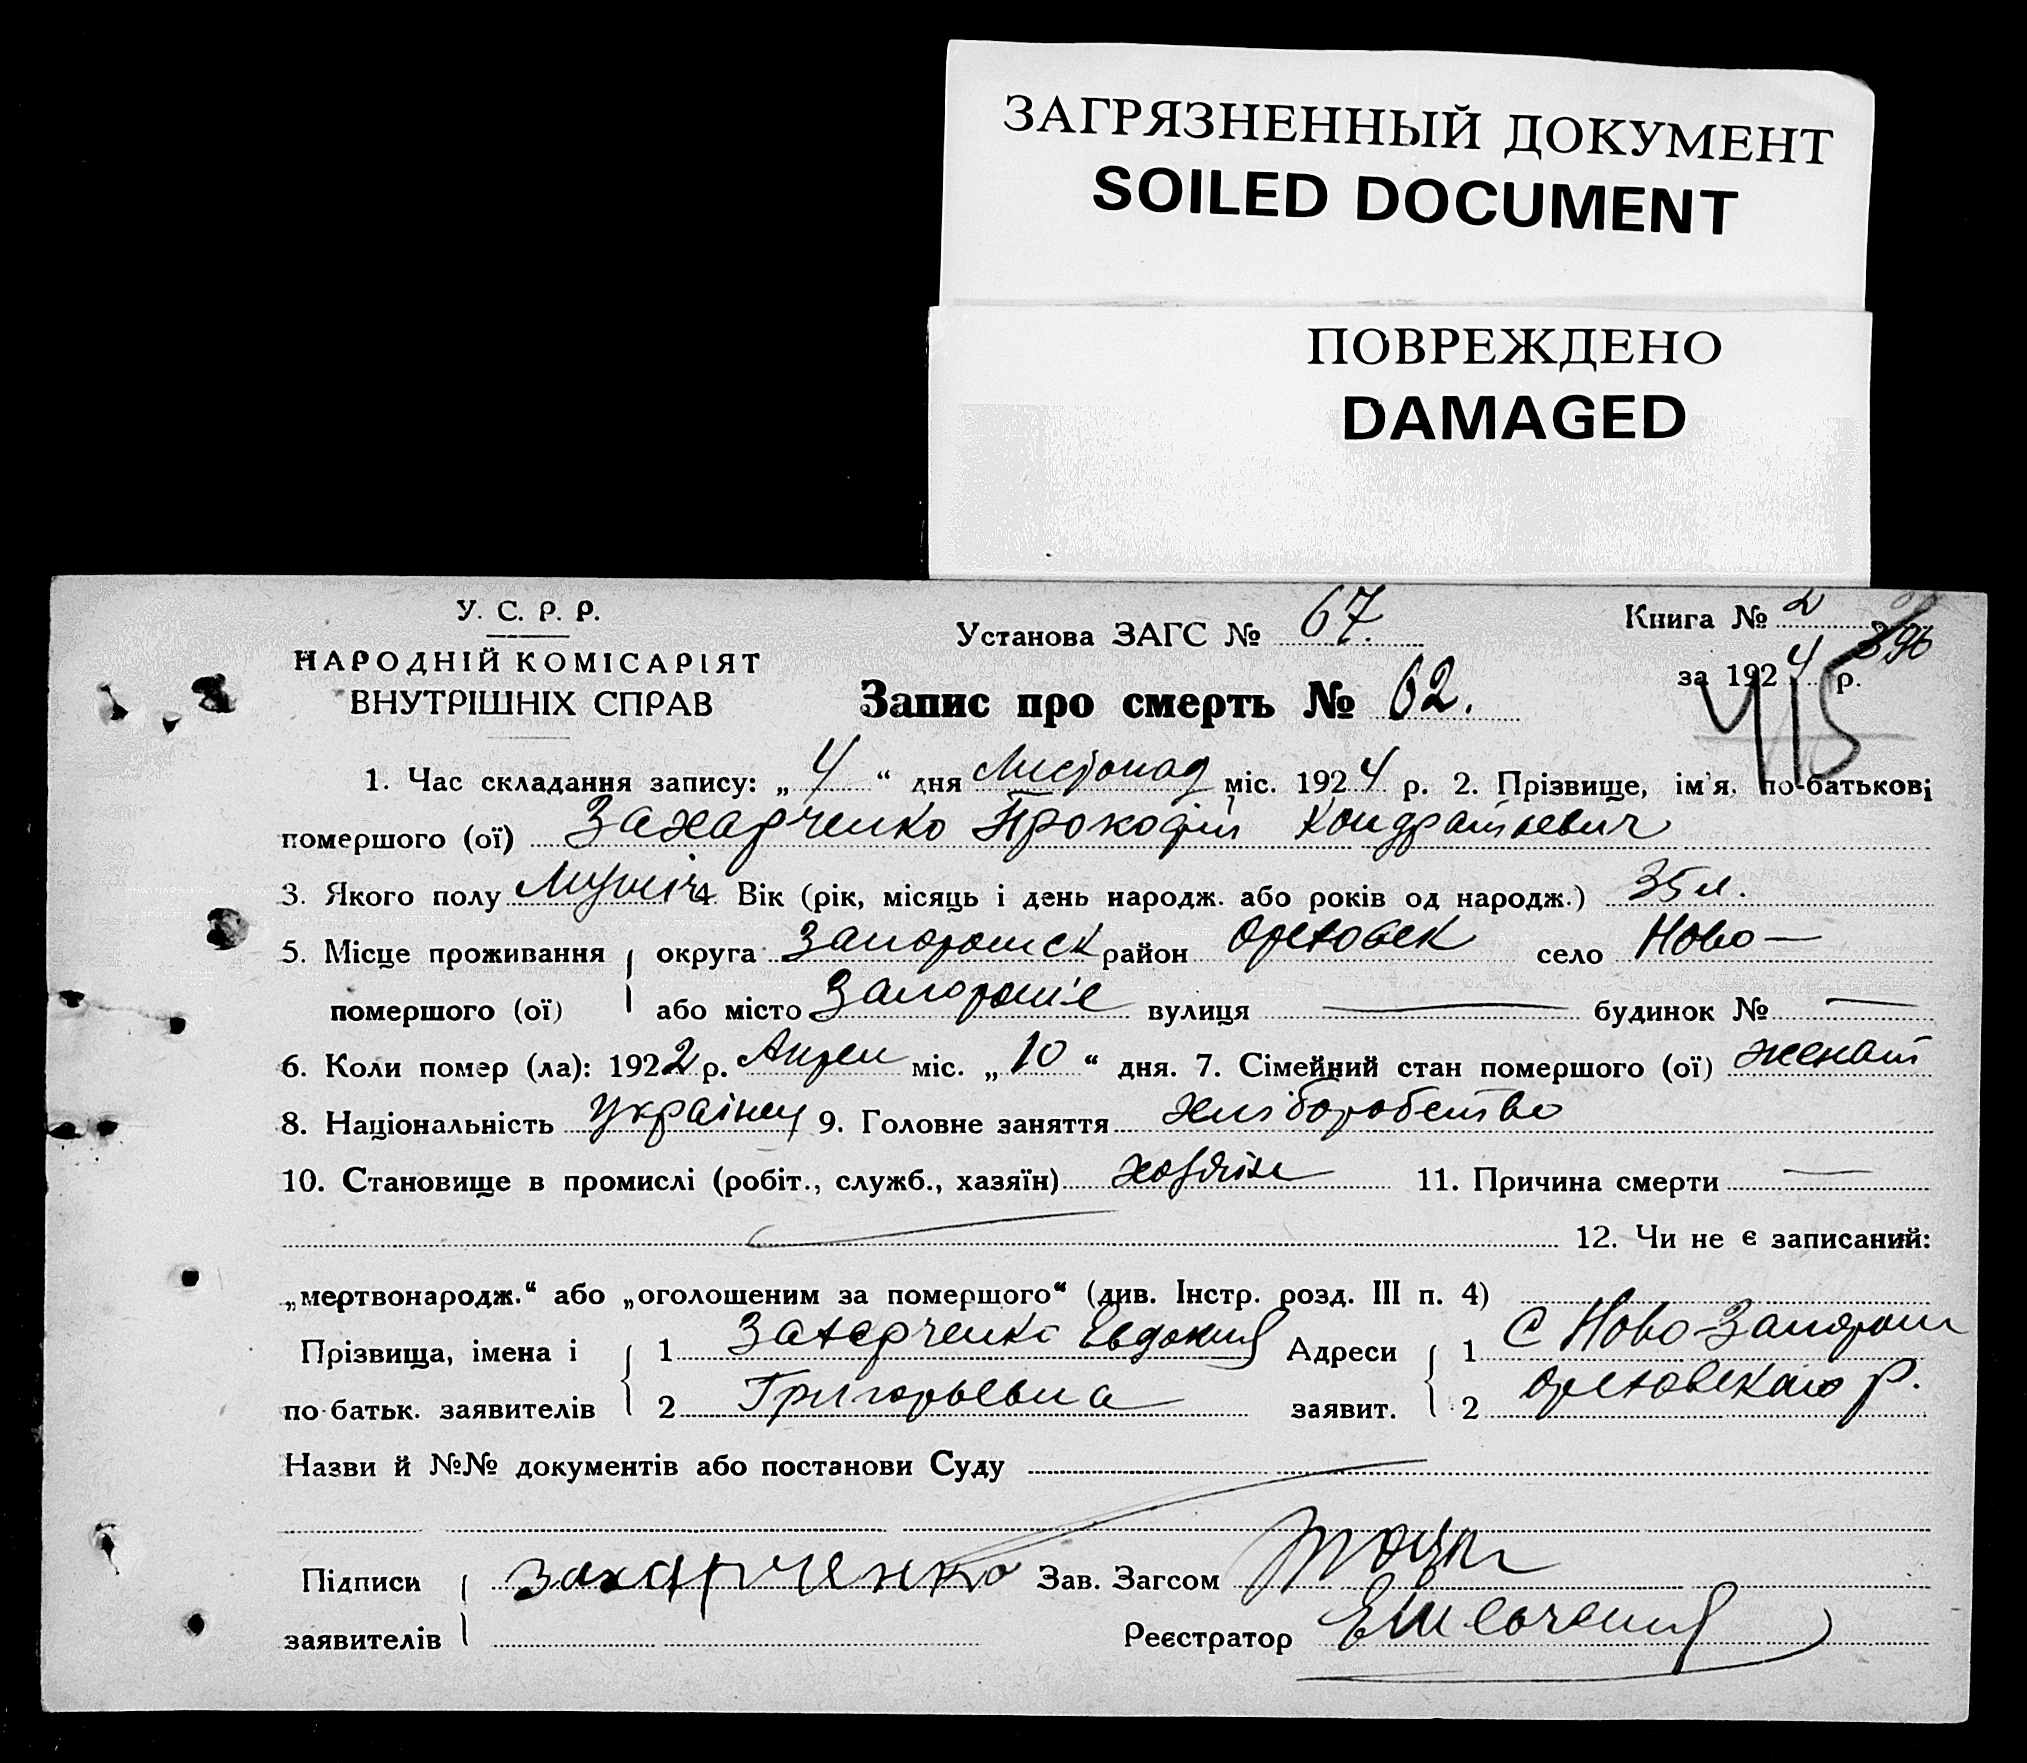 ЗАГРЯЗНЕННЫЙ ДОКУМЕНТ
SOILED DOCUMENT
ПОВРЕЖДЕНО
DAMAGED
У. С. Р. Р.
НАРОДНІЙ КОМІСАРІЯТ
ВНУТРІШНІХ СПРАВ
Установа ЗАГС № 67.
Книга № 2
за 1924 р.
415
Запис про смерть № 62.
1. Час складання запису: „ 4 “ дня Листопад міс. 1924 р. 2. Прізвище, ім'я, по-батькові
помершого (ої) Захарченко Прокофій Кондратьевич
3. Якого полу Мущіч 4. Вік (рік, місяць і день народж. або років од народж.) 35 л.
5. Місце проживання округа Запорожск район Ореховск село Ново-
помершого (ої) або місто Запорож'е вулиця — будинок № —
6. Коли помер (ла): 1922 р. Апрел міс. „ 10 “ дня. 7. Сімейний стан помершого (ої) женат
8. Національність українец 9. Головне заняття хліборобство
10. Становище в промислі (робіт., служб., хазяїн) хозяїн 11. Причина смерти —
12. Чи не є записаний:
„мертвонародж.“ або „оголошеним за померщого“ (див. Інстр. розд. III п. 4)
Прізвища, імена і 1 Захарченко Евдокия Адреси 1 С Ново-Запорож
по-батьк. заявителів 2 Григорьевна заявит. 2 Ореховского р.
Назви й №№ документів або постанови Суду
Підписи Захарченко Зав. Загсом
заявителів Реєстратор